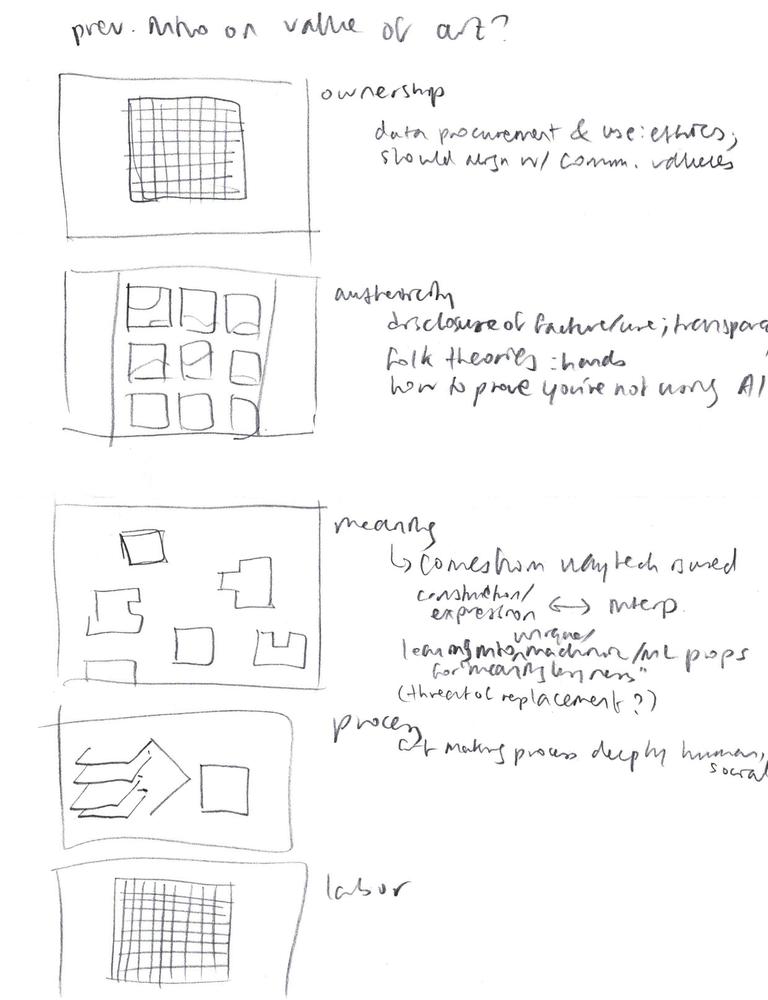 prev. intro on value of art?
ownership
data procurement & use: ethics;
should align w/ comm. values
authenticity
disclosure of facture/use; transpara
folk theories: hands
how to prove you're not using AI
meaning
↳ comes from way tech is used
construction/
expression ↔ interp.
unique/
learning into machinic/ML props
for "meaninglessness"
(threat of replacement?)
process
art making process deeply human,
social
labor